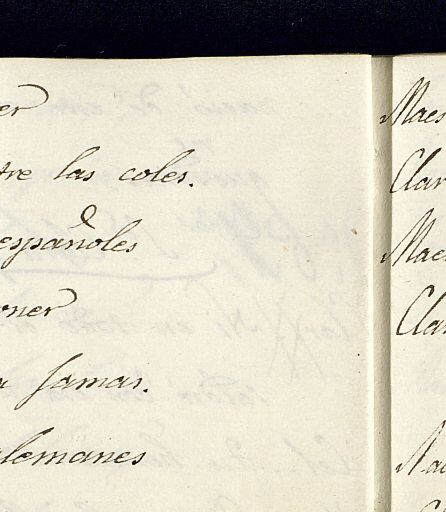 er
tre las coles.
españoles
oner
a Jamas.
alemanes
Maes
Clar
Maes
Clar